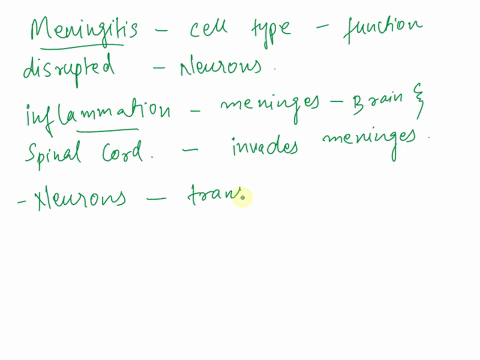 Meningitis - cell type - function
disrupted - Neurons.
inflammation - meninges - Brain &
Spinal Cord. - invades meninges.
- Neurons - trans